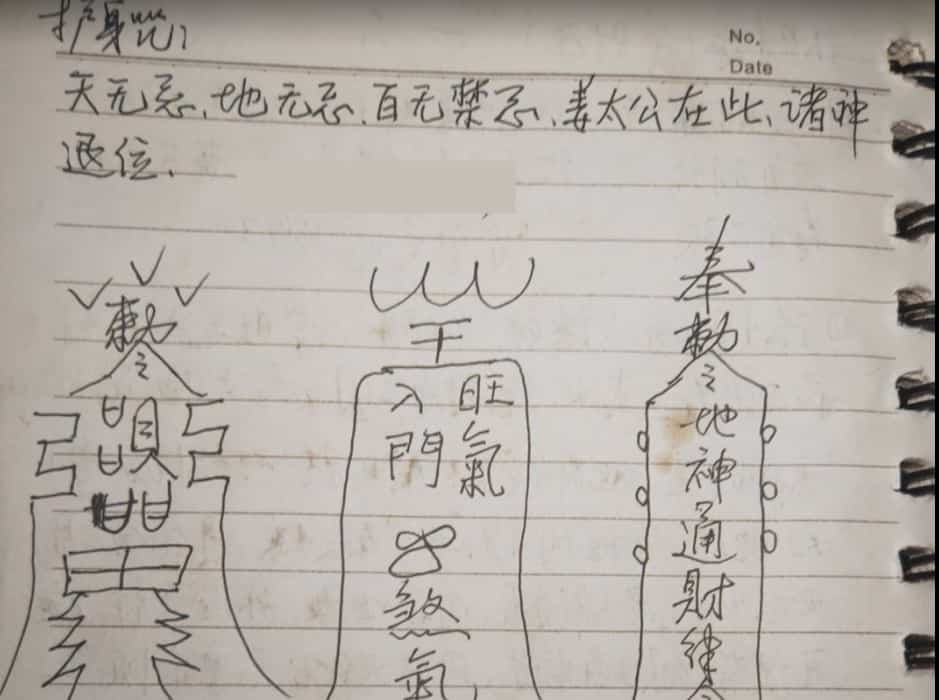 护身咒:
No.
Date
天无忌、地无忌、百无禁忌、姜太公在此、诸神
退位.
敕
令
入 旺
門 氣
煞
氣
奉
勅
令
地
神
通
財